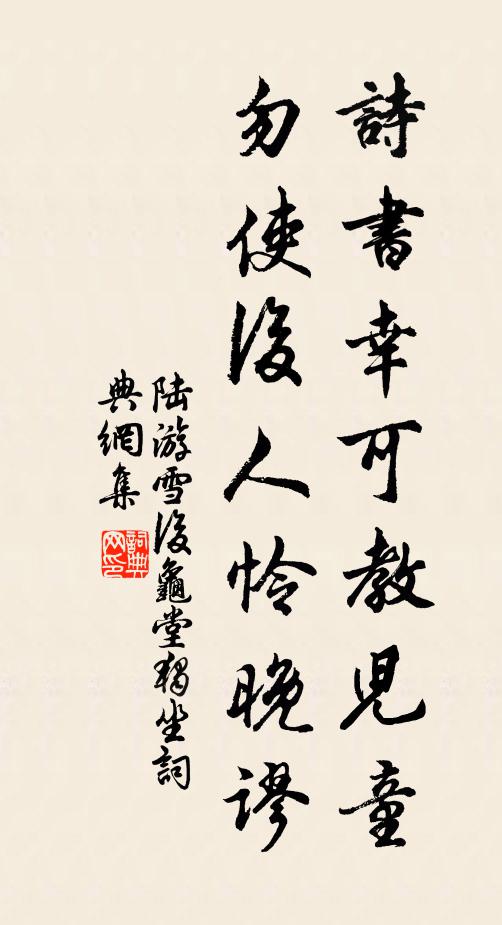 詩書幸可教兒童
勿使後人怜晚謬
陆游雪後龜堂独坐詞
典網集
詞典
网印